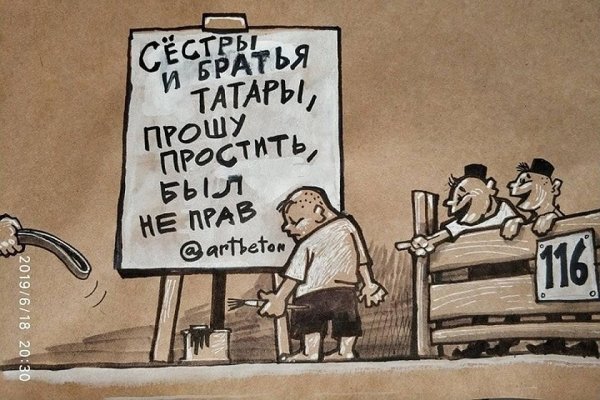 СЁСТРЫ
И БРАТЬЯ
ТАТАРЫ,
ПРОШУ
ПРОСТИТЬ,
БЫЛ
НЕ ПРАВ
@artbeton
116
2019/6/18 20:30